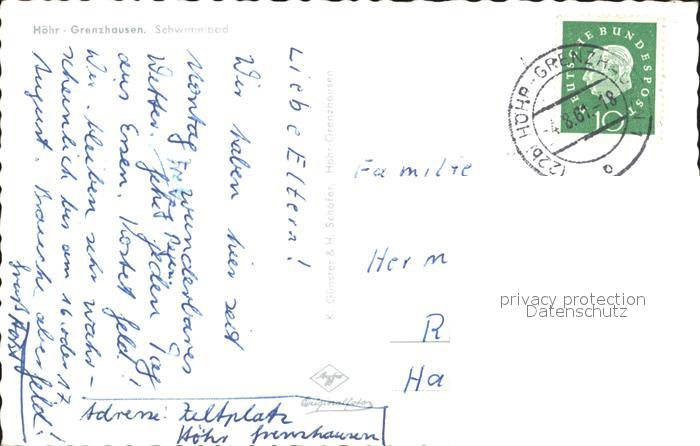 Höhr - Grenzhausen. Schwimmbad
Liebe Eltern!
Wir haben hier seit
Montag wunderbares
Wetter. jeden Tag
aus Essen. Kostet Geld!
Wir bleiben sehr wahr-
scheinlich bis am 16. oder 17.
August. Brauche aber Geld!
Gruß Horst
Adresse: Zeltplatz
Höhr Grenzhausen
K. Günster & H. Schäfer, Höhr-Grenzhausen
Agfa
Originalfoto
Familie
Herm
R
Ha
DEUTSCHE BUNDESPOST
10
(22b) HÖHR-GRENZHAUSEN
-4.8.61.-18
privacy protection
Datenschutz